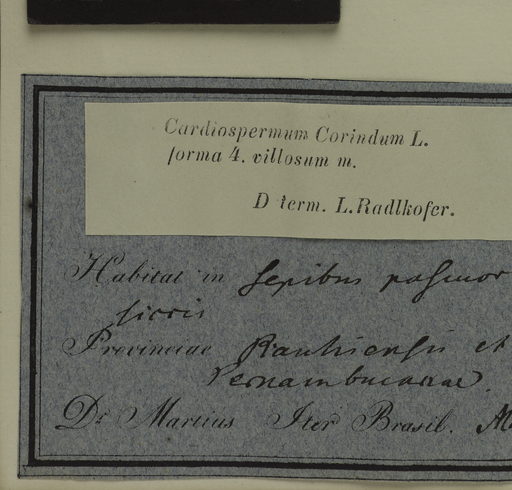 Cardiospermum Corindum L.
forma 4. villosum m.
D term. L. Radlkofer.
Habitat in sepibus
siccis
Provinciae et
Pernambucanae.
Dr. Martius Iter Brasil.